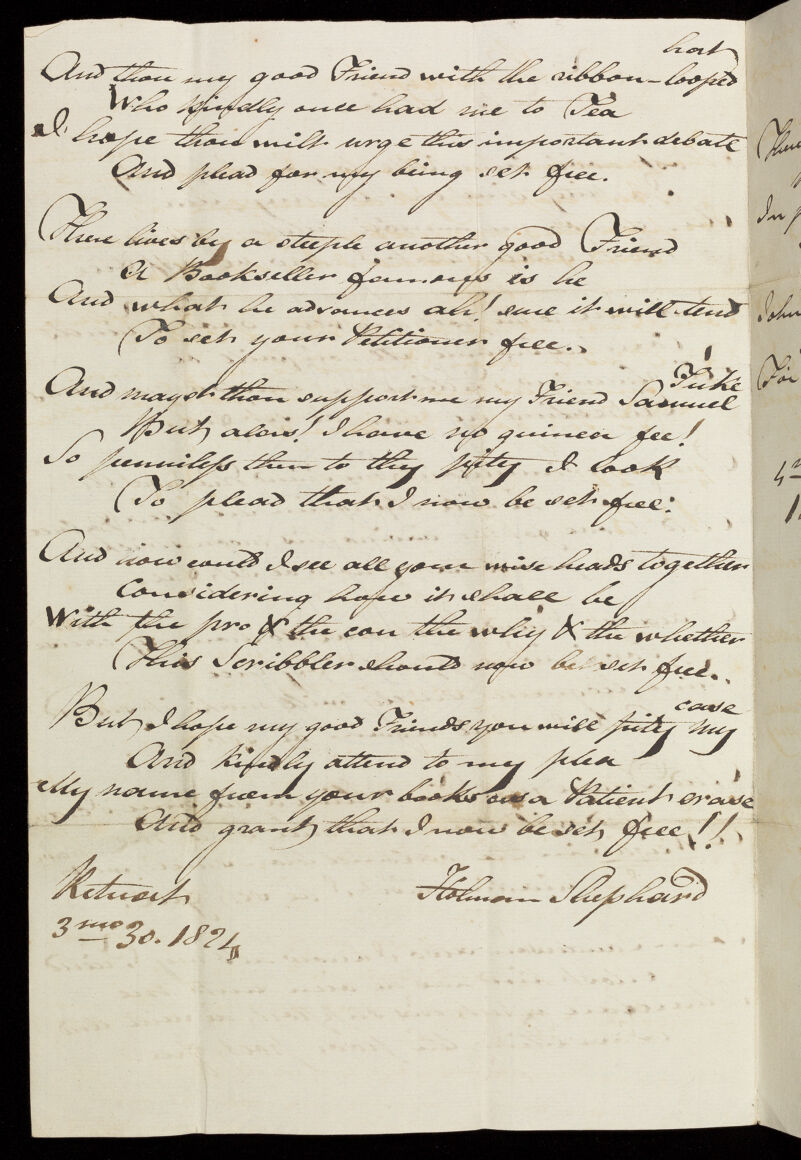 And thou my good Friend with the ribbon-looped hat
Who kindly once had me to Tea
I hope thou wilt urge this important debate
And plead for my being set free.
There lives by a steeple another good Friend
A Bookseller famous is he
And what he advances ah! sure it will tend
To set your Petitioner free.
And mayst thou support me my Friend Samuel Tuke!
But alas! I have no guinea fee!
So penniless then to thy pity I look
To plead that I now be set free:
And now could I see all your wise heads together
Considering how it shall be
With the pro & the con the why & the whether
This Scribbler should now be set free.
But I hope my good Friends you will pity my case
And kindly attend to my plea
My name from your books as a Patient erase
And grant that I now be set free!!
Retreat
Holman Shephard
3mo 30. 1824
In
John
For